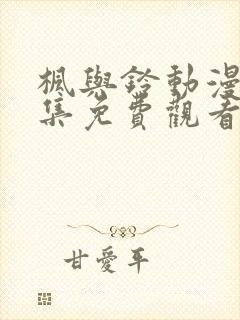 楓與鈴動漫
集免費觀看
甘愛平